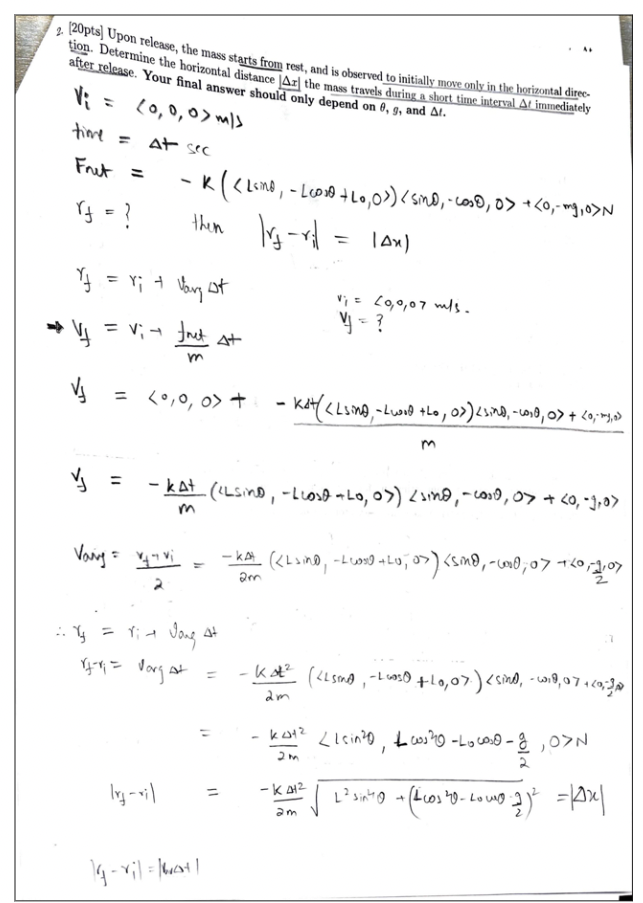 2. [20pts] Upon release, the mass starts from rest, and is observed to initially move only in the horizontal direc-
tion. Determine the horizontal distance |Δx| the mass travels during a short time interval Δt immediately
after release. Your final answer should only depend on θ, g, and Δt.
Vi = <0,0,0> m/s
time = Δt sec
Fnet = - K (<Lsinθ, -Lcosθ+Lo,0>) <sinθ,-cosθ,0> + <0,-mg,0>N
rf = ? then |rf - ri| = |Δx|
rf = ri + Vavg Δt
vi = <0,0,0> m/s.
Vf = ?
→ Vf = Vi + fnet/m Δt
Vf = <0,0,0> + - KΔt(<Lsinθ,-Lcosθ+Lo,0>)<sinθ,-cosθ,0> + <0,-mg,0> / m
Vf = - kΔt/m (<Lsinθ, -Lcosθ+Lo,0>) <sinθ,-cosθ,0> + <0,-g,0>
Vavg = vf+vi/2 = -kΔt/2m (<Lsinθ, -Lcosθ+Lo,0>) <sinθ,-cosθ,0> +<0,-g/2,0>
∴ rf = ri + Vavg Δt
rf-ri = Vavg Δt = - kΔt²/2m (<Lsinθ, -Lcosθ+Lo,0>) <sinθ,-cosθ,0> + <0,-g/2,0>
= - kΔt²/2m <Lsin²θ, Lcos²θ-Locosθ-g/2, 0>N
|rf-ri| = -kΔt²/2m √L²sin⁴θ + (Lcos²θ-Locosθ-g/2)² = |Δx|